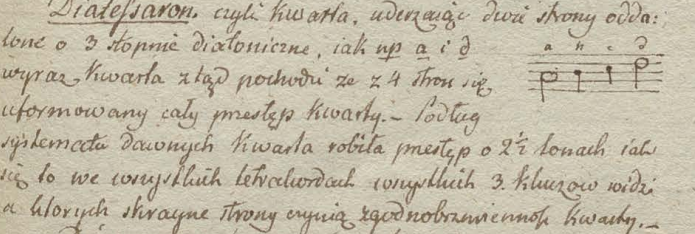 Diatessaron. czyli Kwarta, uderzaiąc dwie strony odda:
lone o 3 stopnie diatoniczne, iak np a i d a h c d
wyraz Kwarta ztąd pochodzi ze z 4 stron się
uformowany cały przestęp Kwarty. – Podług
systematu dawnych Kwarta robiła przestęp o 2½ tonach iak
się to we wszystkich tetrakordach wszystkich 3. kluczow widzi
a ktorych skrayne strony czynią zgodnobrzmienność Kwarty. –